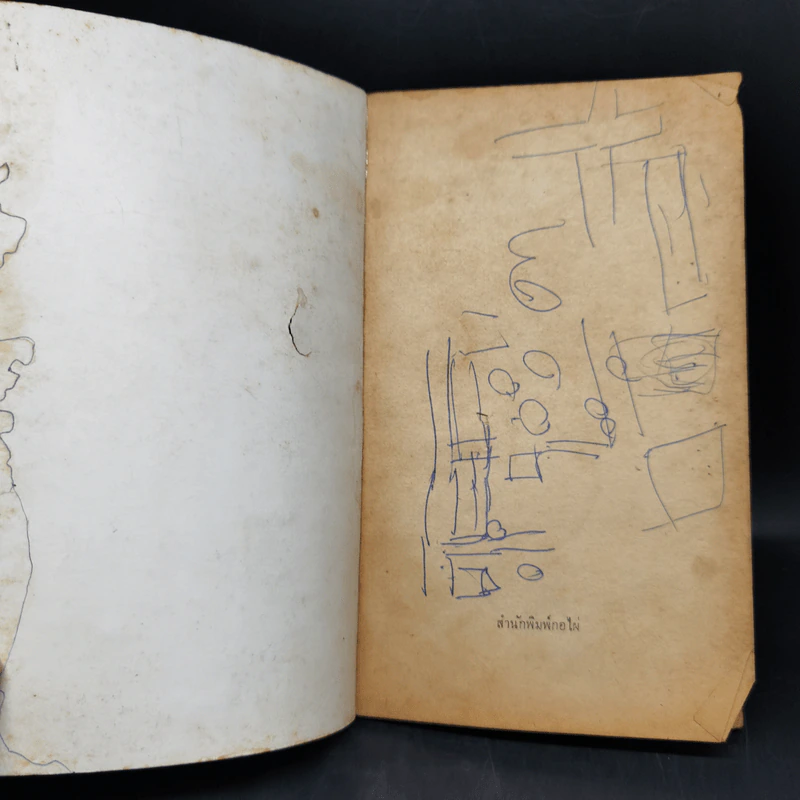 สำนักพิมพ์กอไผ่